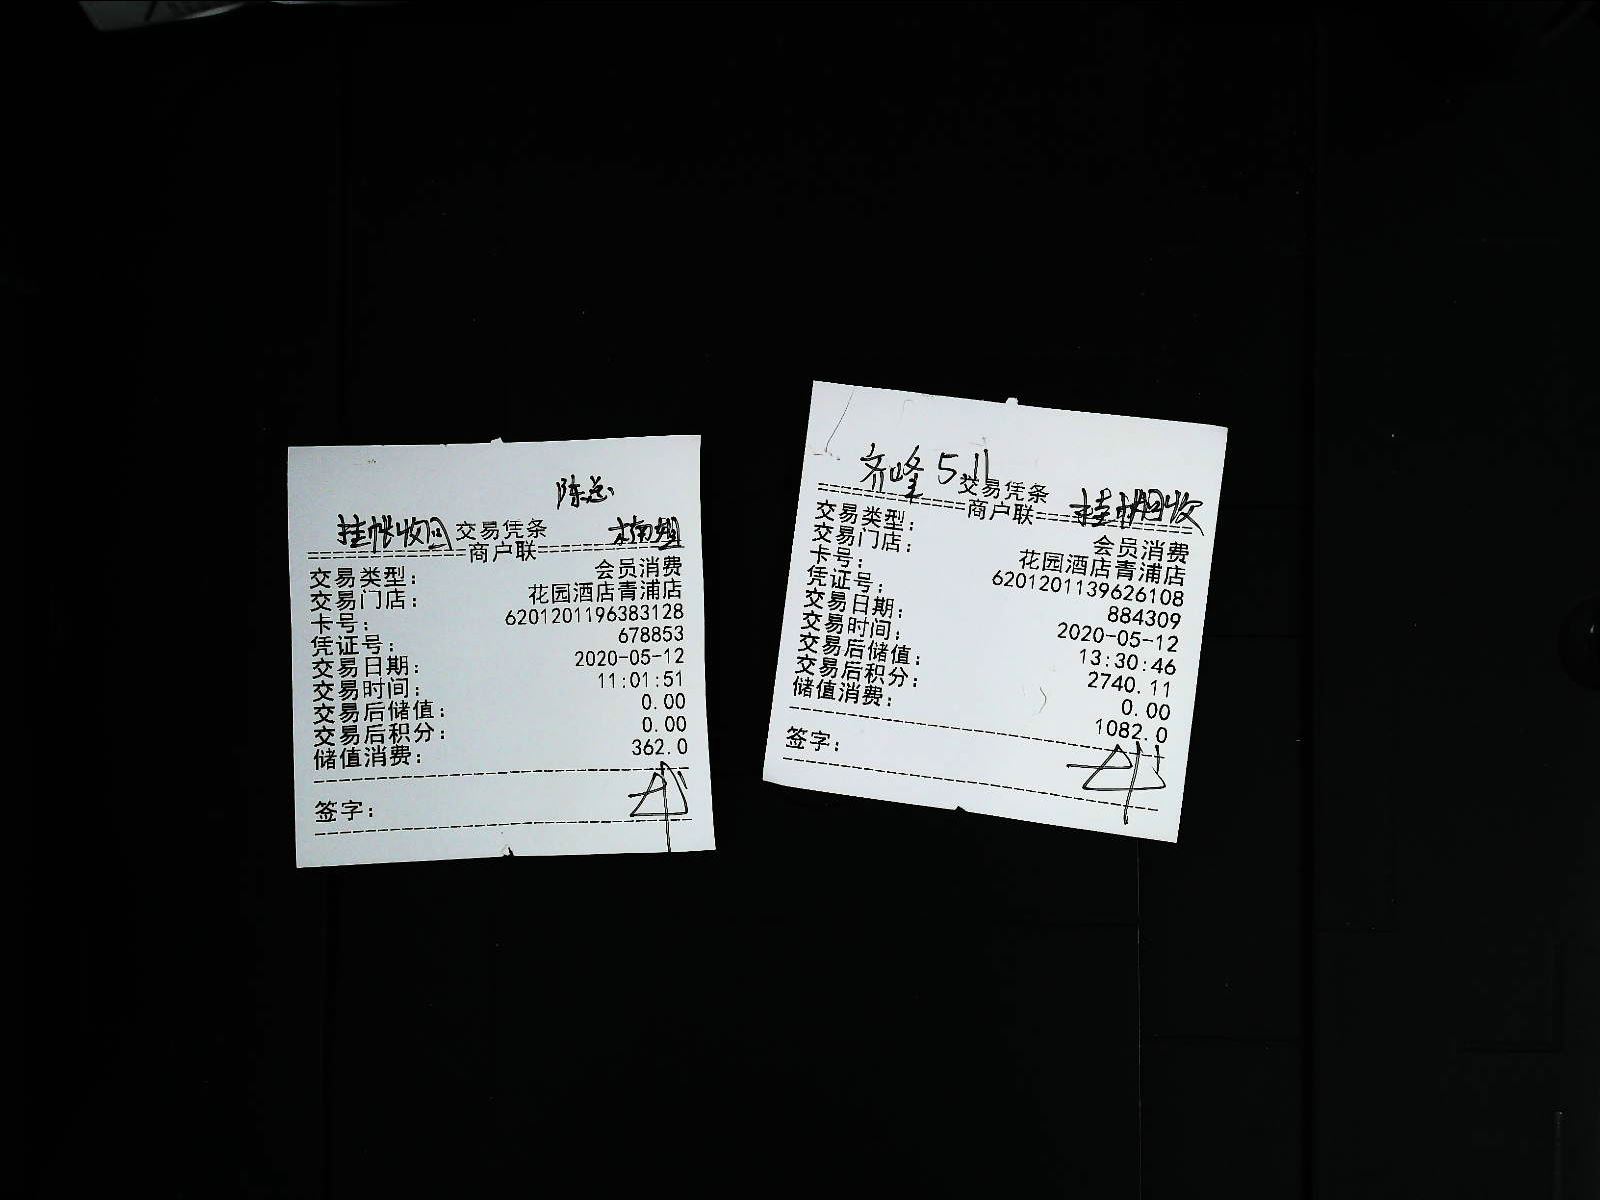 陈总
挂帐收回 交易凭条
==商户联==
交易类型: 会员消费
交易门店: 花园酒店青浦店
卡号: 6201201196383128
凭证号: 678853
交易日期: 2020-05-12
交易时间: 11:01:51
交易后储值: 0.00
交易后积分: 0.00
储值消费: 362.0
签字:
齐峰 5.11
交易凭条 挂帐回收
==商户联==
交易类型: 会员消费
交易门店: 花园酒店青浦店
卡号: 6201201139626108
凭证号: 884309
交易日期: 2020-05-12
交易时间: 13:30:46
交易后储值: 2740.11
交易后积分: 0.00
储值消费: 1082.0
签字: